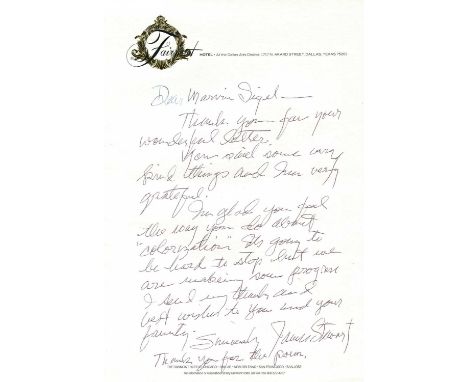 Fairmont
HOTEL • At the Dallas Arts District, 1717 N. AKARD STREET, DALLAS, TEXAS 75201
Dear Marvin Sigel —
Thank you for your
wonderful letter.
You said some very
kind things and I'm very
grateful.
I'm glad you feel
the way you do about
"colorization" It's going to
be hard to stop but we
are making some progress
I send my thanks and
best wishes to you and your
family.
Sincerely James Stewart
Thank you for the poem.
THE FAIRMONT HOTELS